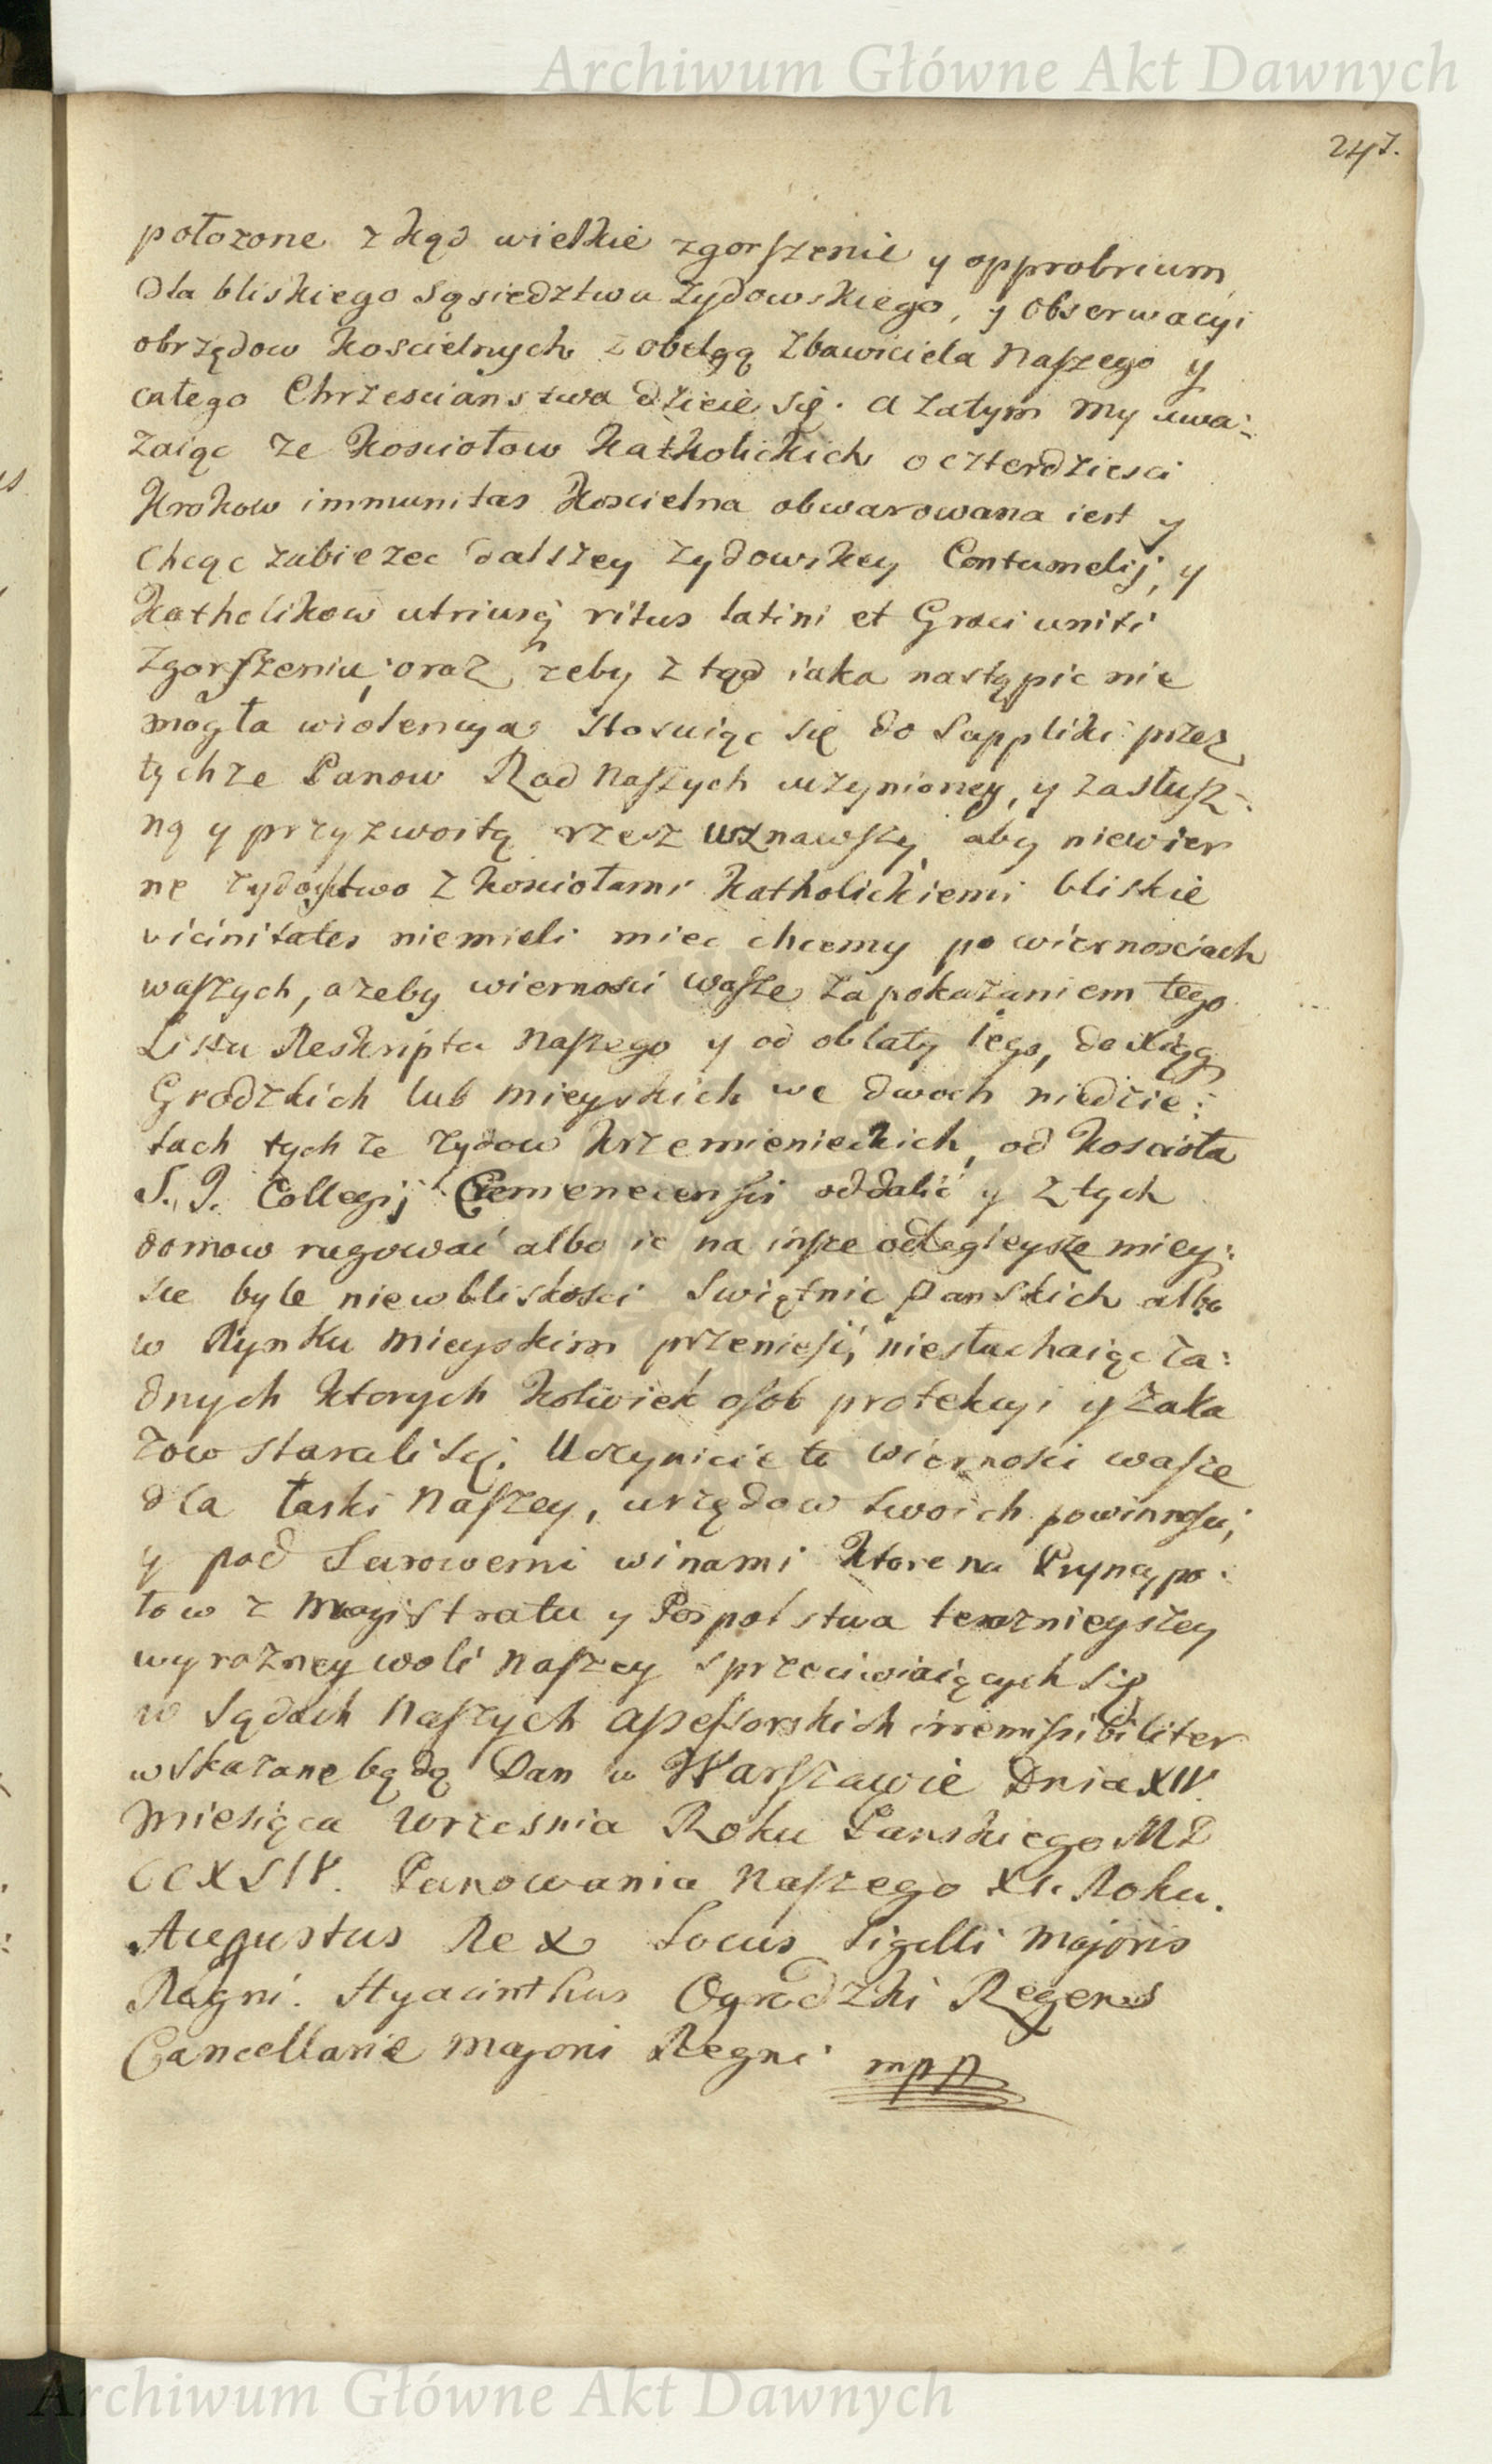 Archiwum Główne Akt Dawnych
247.
połozone z kąd wielkie zgorszenie y opprobrium
dla bliskiego Sąsiedztwa zydowskiego, y Obserwacyi
obrzędow koscielnych z obelgą Zbawiciela naszego y
całego Chrzescianstwa dzieie się. A zatym my uwa:
zaiąc ze kosciołow katholickich o czterdziesci
krokow immunitas koscielna obwarowana iest y
chcąc zabiezec dalszey zydowskey Contumelij, y
katholikow utriusq ritus latini et Graeci uniti
zgorszeniu, oraz zeby z tąd iaka nastąpic nie
mogła wiolencya, stosuiąc się do Suppliki przez
tychze Panow Rad naszych uczynioney, y za słusz:
ną y przyzwoitą rzecz uznawszy, aby niewier
ne zydostwo z kosciołami katholickiemi bliskie
vicinitates niemieli miec chcemy po wiernosciach
waszych, azeby wiernosci wasze za pokazaniem tego
Listu Reskriptu naszego y od oblaty iego, do xiąg
Grodzkich lub mieyskich we dwoch niedzie:
lach tychze zydow krzemienieckich, od koscioła
S. J. Collegij Cremenecensis oddalić y z tych
domow rugować albo ic na insze odlegleysze miey:
sce byle niewbliskosci Swiątnic Panskich albo
w Rynku mieyskim przeniesć, niesłuchaiąc ża:
dnych ktorych kolwiek osob protekcyi y zaka
zow starali się. Uczynicie to wiernosci wasze
dla łaski naszey, urzędow swoich powinnosci,
y pod Surowemi winami ktore na Pryncypa:
łow z magistratu y Pospolstwa teraznieyszey
wyrazney woli naszey sprzeciwiaiących się
w Sądach naszych assessorskich irremissibiliter
wskazane będą Dan w Warszawie Dnia XIV.
miesiąca Wrzesnia Roku Panskiego MD
CCXLIV. Panowania naszego XI. Roku.
Augustus Rex Locus Sigilli majoris
Regni. Hyacinthus Ogrodzki Regens
Cancellarie majoris Regni mpp
Archiwum Główne Akt Dawnych